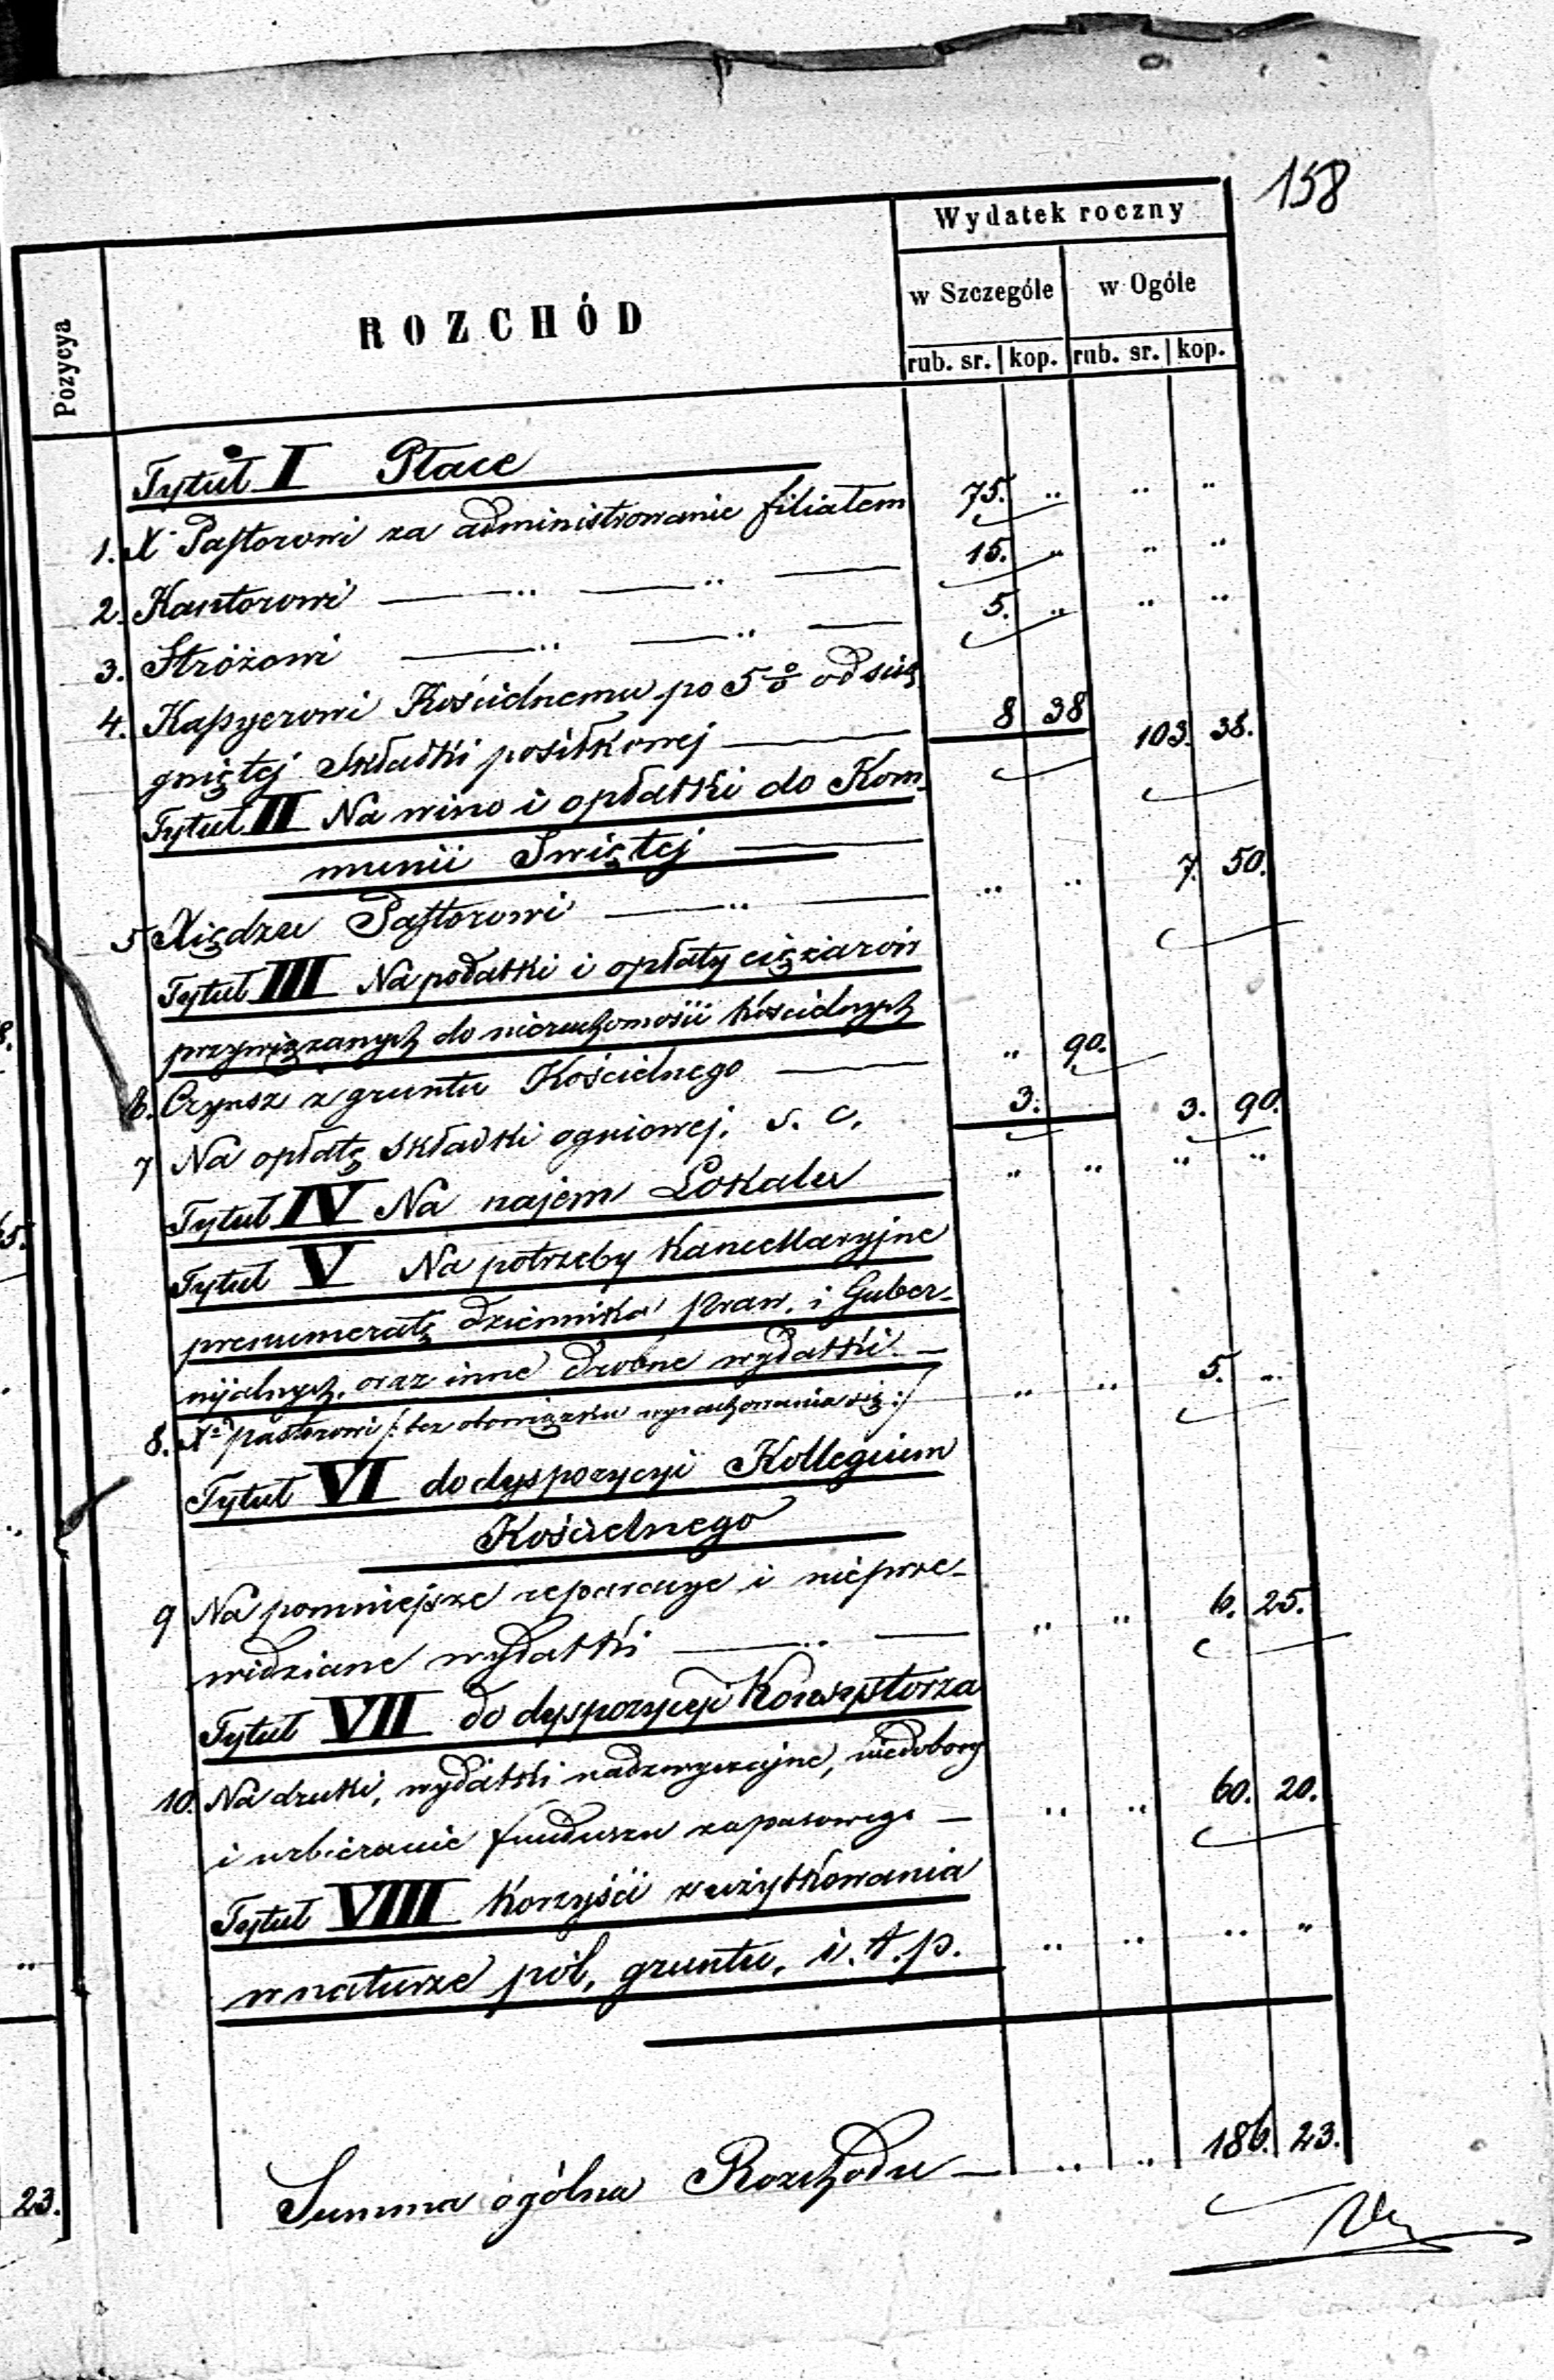 158
Pozycya
ROZCHÓD
Wydatek roczny
w Szczególe w Ogóle
rub. sr. kop. rub. sr. kop.
Tytuł I Płace
1. X. Pastorowi za administrowanie filiałem 75. " " "
2. Kantorowi — " — " — 15. " " "
3. Stróżowi — " — " — 5. " " "
4. Kassyerowi Kościelnemu po 5 % od scią
gniętej Składki posiłkowej — 8 38 103. 38.
Tytuł II Na wino i opłatki do Kom-
munii Swiętej —
5 Xiędzu Pastorowi — " — " " 7. 50.
Tytuł III Na podatki i opłaty ciężarów
przywiązanych do nieruchomości Kościelnych
6. Czynsz z gruntu Kościelnego — " 90.
7 Na opłatę składki ogniowej. s. c. 3. 3. 90.
Tytuł IV Na najem Lokalu " " " "
Tytuł V Na potrzeby Kancellaryjne
prenumeratę dziennika Praw. i Guber-
nijalnych, oraz inne drobne wydatki. —
8. Xu pastorowi /: bez obowiązku wyrachowania się :/ " " 5. "
Tytuł VI do dyspozycyi Kollegium
Kościelnego
9 Na pomniejsze reparacye i nieprze-
widziane wydatki — " — " " 6. 25.
Tytuł VII do dyspozycyi Konsystorza
10. Na druki, wydatki nadzwyczajne, niedobory
i uzbieranie funduszu zapasowego — " " 60. 20.
Tytuł VIII Korzyści z użytkowania
w naturze pól, gruntu, i. t. p. " " " "
Summa ogólna Rozchodu — " " 186. 23.
23.